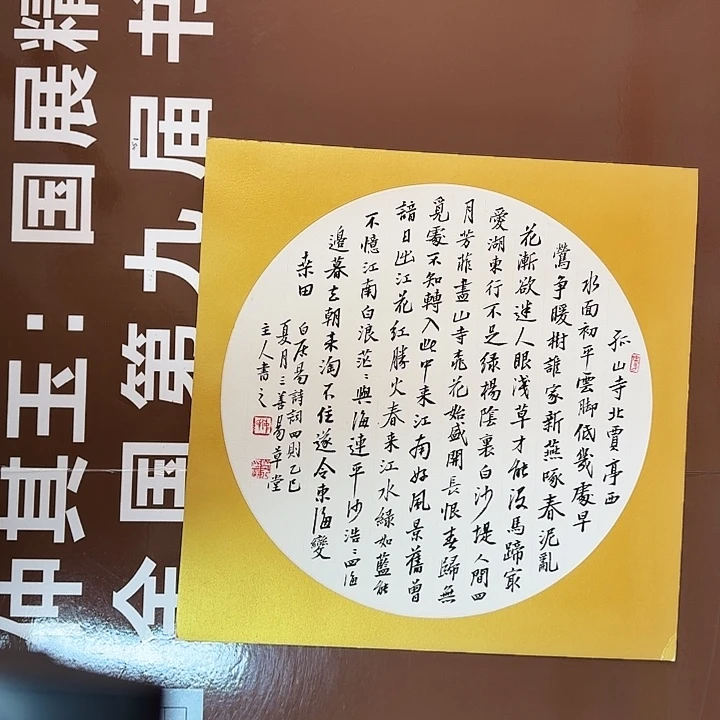 孤山寺北賈亭西
水面初平雲脚低幾處早
鶯争暖樹誰家新燕啄春泥亂
花漸欲迷人眼淺草才能没馬蹄最
愛湖東行不足綠楊陰裏白沙提人間四
月芳菲盡山寺桃花始盛開長恨春歸無
覓處不知轉入此中来江南好風景舊曾
諳日出江花紅勝火春来江水綠如藍能
不憶江南白浪茫〻與海連平沙浩〻四海
邊暮去朝来淘不住遂令東海變
桑田
白居易詩詞四則乙巳
夏月三善易草堂
主人書之
仲其玉：国展精
全国第九届书